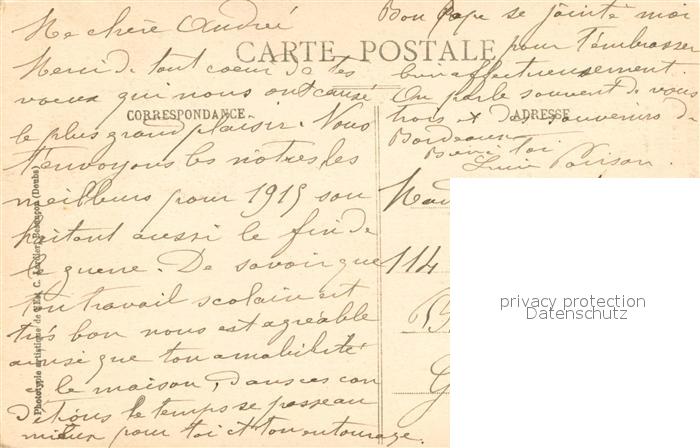 Ma chère Andrée
Merci de tout coeur de tes
voeux qui nous ont causé
le plus grand plaisir. Nous
t'envoyons les notres les
meilleurs pour 1915 sou
haitant aussi le fin de
la guerre. De savoir que
ton travail scolaire est
très bon nous est agréable
ainsi que ton amabilité
a la maison, dans ces con
ditions le temps se passe au
mieux pour toi et ton entourage.
Bon Papa se joint à moi
pour t'embrasser
bien affectueusement.
On parle souvent de vous
trois et des souvenirs de
Bordeaux
Bien à toi.
CARTE POSTALE
CORRESPONDANCE
ADRESSE
114
Phototypie artistique de l'Est C. Lardier, Besançon (Doubs)
privacy protection
Datenschutz